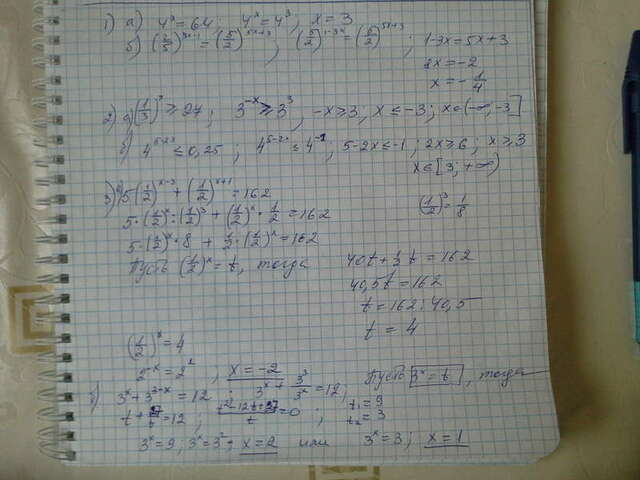 1) а) 4^x = 64; 4^x = 4^3, x = 3
б) (2/5)^{3x-1} = (5/2)^{5x+3}; (5/2)^{1-3x} = (5/2)^{5x+3}; 1-3x = 5x+3
8x = -2
x = -1/4
2) а) (1/3)^x ≥ 27; 3^{-x} ≥ 3^3; -x ≥ 3; x ≤ -3; x∈(-∞, -3]
б) 4^{5-2x} ≤ 0,25; 4^{5-2x} ≤ 4^{-1}; 5-2x ≤ -1; 2x ≥ 6; x ≥ 3
x∈[3; +∞)
3) а) 5(1/2)^{x-3} + (1/2)^{x+1} = 162
5·(1/2)^x : (1/2)^3 + (1/2)^x · 1/2 = 162
(1/2)^3 = 1/8
5·(1/2)^x·8 + 1/2·(1/2)^x = 162
Пусть (1/2)^x = t, тогда
40t + 1/2 t = 162
40,5t = 162
t = 162 : 40,5
t = 4
(1/2)^x = 4
2^{-x} = 2^2, x = -2
б) 3^x + 3^{3-x} = 12, 3^x + 3^3/3^x = 12, Пусть 3^x = t, тогда
t + 27/t = 12, (t^2-12t+27)/t = 0; t_1 = 9
t_2 = 3
3^x = 9; 3^x = 3^2; x = 2 или 3^x = 3; x = 1